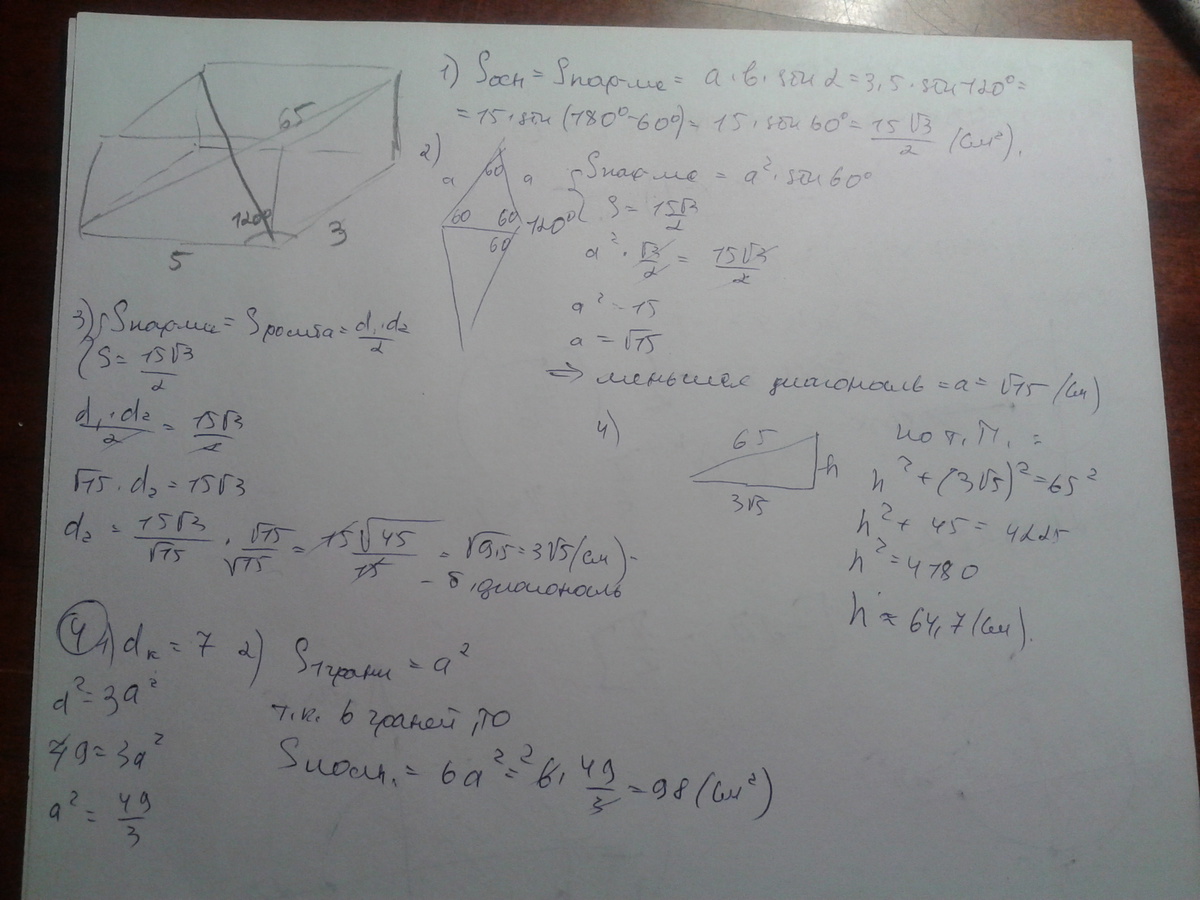 65
120°
5
3
1) Sосн = Sпар-ма = a · b · sin α = 3,5 · sin 120° =
= 15 · sin (180° - 60°) = 15 · sin 60° = 15√3/2 (см²).
2)
a
60
a
60
60
60
120°
{ Sпар-ма = a² · sin 60°
S = 15√3/2
a² · √3/2 = 15√3/2
a² = 15
a = √15
⇒ меньшая диагональ = a = √15 (см)
3) { Sпар-ма = Sромба = d₁·d₂/2
S = 15√3/2
d₁·d₂/2 = 15√3/2
√15 · d₂ = 15√3
d₂ = 15√3/√15 · √15/√15 = 15√45/15 = √9,5 = 3√5 (см) -
- б. диагональ
4)
65
h
3√5
по т. П. =
h² + (3√5)² = 65²
h² + 45 = 4225
h² = 4180
h ≈ 64,7 (см).
4 1) dк = 7
d² = 3a²
49 = 3a²
a² = 49/3
2) S1грани = a²
т.к. 6 граней, то
Sполн. = 6a² = ²6 · 49/3 = 98 (см²)